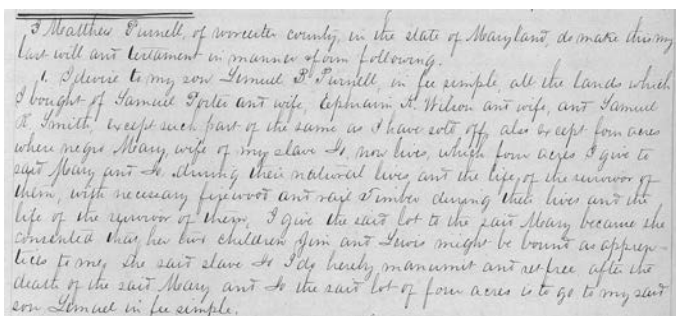 I Matthew Purnell, of worcester county, in the state of Maryland, do make this my
last will and testament in manner & form following.
1. I devise to my son Lemuel B. Purnell, in fee simple, all the lands which
I bought of Samuel Porter and wife, Ephraim K. Wilson and wife, and Samuel
R. Smith, except such part of the same as I have sold off, also except four acres
where negro Mary, wife of my slave now lives, which four acres I give to
said Mary and during their natural lives, and the life, of the survivor of
them, with necessary firewood and rail Timber during their lives and the
life of the survivor of them, I give the said lot to the said Mary because she
consented that her two children Jim and Lewis might be bound as appren-
tices to me, the said slave I do hereby manumit and set free, after the
death of the said Mary and the said lot of four acres is to go to my said
son Lemuel in fee simple.